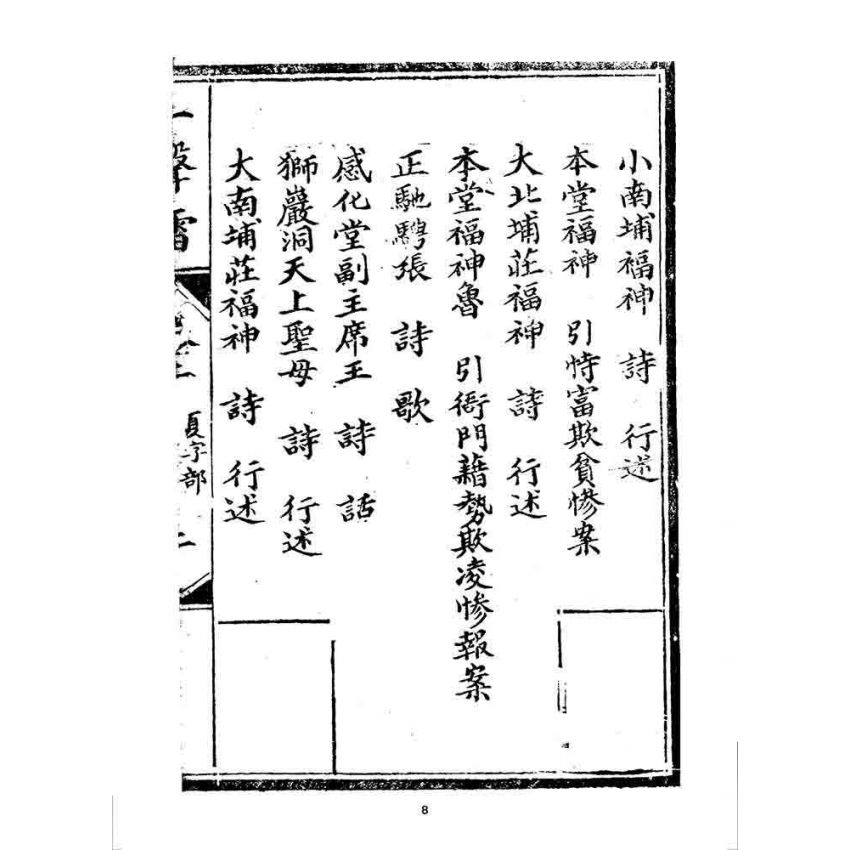 小南埔福神　詩　行述
本堂福神　引恃富欺貧慘案
大北埔莊福神　詩　行述
本堂福神魯　引衙門藉勢欺凌慘報案
正馳騁張　詩　歌
感化堂副主席王　詩　話
獅巖洞天上聖母　詩　行述
大南埔莊福神　詩　行述
夏字部　二
8